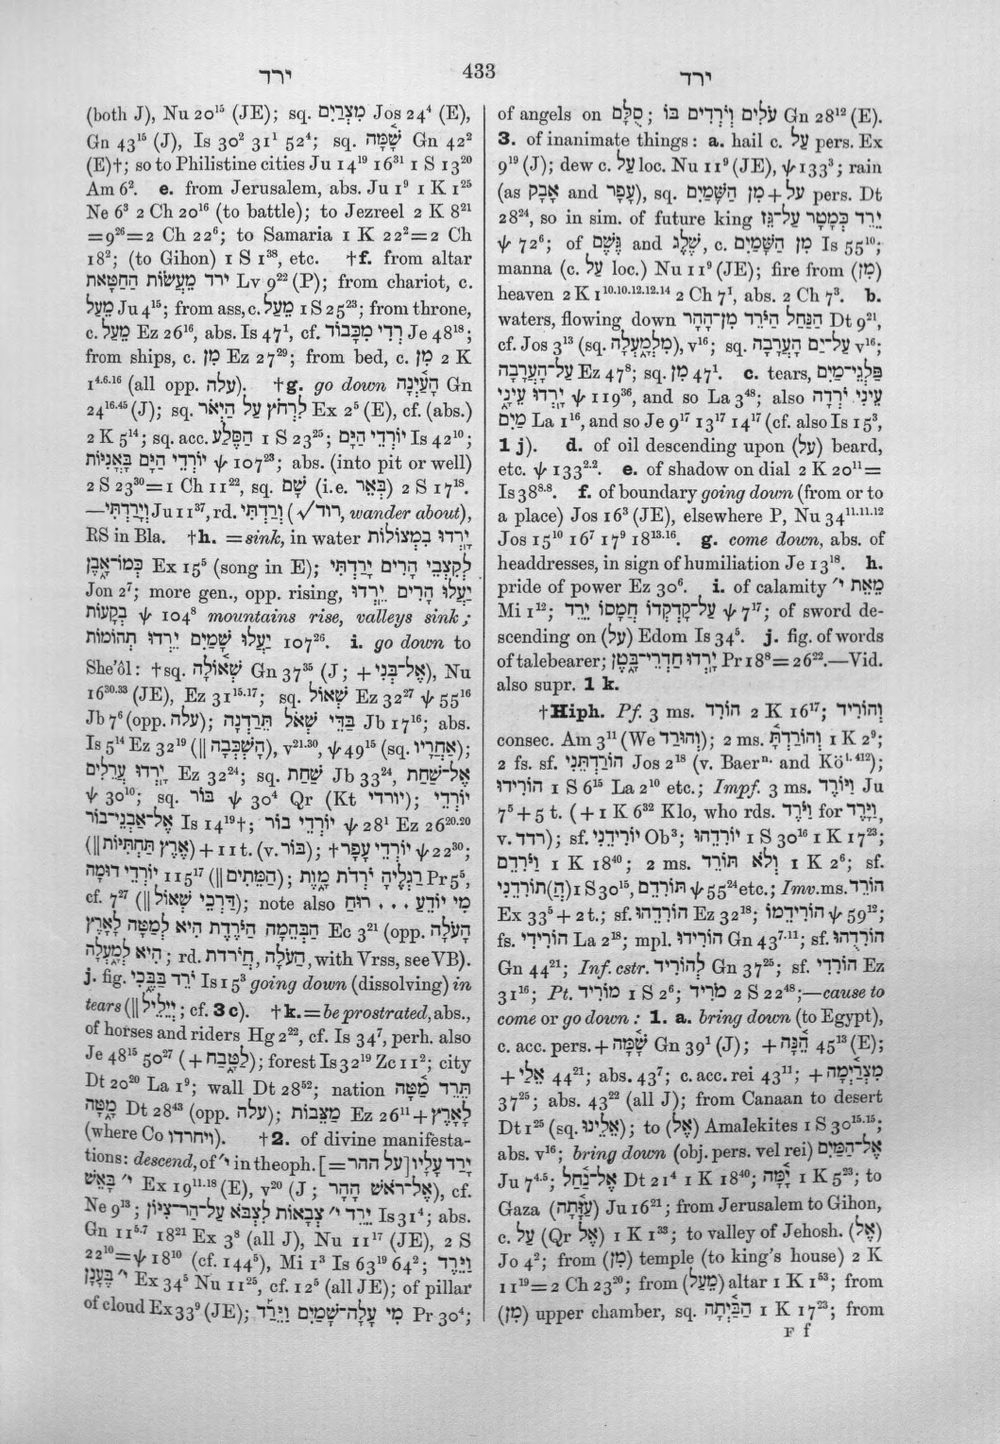 ירד
433
ירד
(both J), Nu 20¹⁵ (JE); sq. מִצְרַיִם Jos 24⁴ (E),
Gn 43¹⁵ (J), Is 30² 31¹ 52⁴; sq. שָׁמָּה Gn 42²
(E)†; so to Philistine cities Ju 14¹⁹ 16³¹ 1 S 13²⁰
Am 6². e. from Jerusalem, abs. Ju 1⁹ 1 K 1²⁵
Ne 6³ 2 Ch 20¹⁶ (to battle); to Jezreel 2 K 8²¹
=9²⁶=2 Ch 22⁶; to Samaria 1 K 22²=2 Ch
18²; (to Gihon) 1 S 1³⁸, etc. †f. from altar
ירד מֵעֲשׂוֹת הַחַטָּאת Lv 9²² (P); from chariot, c.
מֵעַל Ju 4¹⁵; from ass, c. מֵעַל 1 S 25²³; from throne,
c. מֵעַל Ez 26¹⁶, abs. Is 47¹, cf. רְדִי מִכָּבוֹד Je 48¹⁸;
from ships, c. מִן Ez 27²⁹; from bed, c. מִן 2 K
1⁴·⁶·¹⁶ (all opp. עלה). †g. go down הָעַיְנָה Gn
24¹⁶·⁴⁵ (J); sq. לִרְחֹץ עַל הַיְאֹר Ex 2⁵ (E), cf. (abs.)
2 K 5¹⁴; sq. acc. הַסֶּלַע 1 S 23²⁵; יוֹרְדֵי הַיָּם Is 42¹⁰;
יוֹרְדֵי הַיָּם בָּאֳנִיּוֹת ψ 107²³; abs. (into pit or well)
2 S 23³⁰=1 Ch 11²², sq. שָׁם (i.e. בְּאֵר) 2 S 17¹⁸.
—וְיָרַדְתִּי Ju 11³⁷, rd. וְרַדְתִּי (√רוד, wander about),
RS in Bla. †h. =sink, in water יָרְדוּ בִמְצוֹלוֹת
כְּמוֹ־אָבֶן Ex 15⁵ (song in E); לְקִצְבֵי הָרִים יָרַדְתִּי
Jon 2⁷; more gen., opp. rising, יַעֲלוּ הָרִים יֵרְדוּ
בְקָעוֹת ψ 104⁸ mountains rise, valleys sink;
יַעֲלוּ שָׁמַיִם יֵרְדוּ תְהוֹמוֹת 107²⁶. i. go down to
She'ôl: †sq. שְׁאוֹלָה Gn 37³⁵ (J; +אֶל־בְּנִי), Nu
16³⁰·³³ (JE), Ez 31¹⁵·¹⁷; sq. שְׁאוֹל Ez 32²⁷ ψ 55¹⁶
Jb 7⁶ (opp. עלה); בַּדֵּי שְׁאֹל תֵּרַדְנָה Jb 17¹⁶; abs.
Is 5¹⁴ Ez 32¹⁹ (‖ הָשְׁכְּבָה), v²¹·³⁰, ψ 49¹⁵ (sq. אַחֲרָיו);
יָרְדוּ עֲרֵלִים Ez 32²⁴; sq. שַׁחַת Jb 33²⁴, אֶל־שַׁחַת
ψ 30¹⁰; sq. בּוֹר ψ 30⁴ Qr (Kt יורדי); יוֹרְדֵי
אֶל־אַבְנֵי־בוֹר Is 14¹⁹†; יוֹרְדֵי בוֹר ψ 28¹ Ez 26²⁰·²⁰
(‖ אֶרֶץ תַּחְתִּיּוֹת) + 11 t. (v. בּוֹר); †יוֹרְדֵי עָפָר ψ 22³⁰;
יוֹרְדֵי דוּמָה 115¹⁷ (‖ הַמֵּתִים); רַגְלֶיהָ יֹרְדוֹת מָוֶת Pr 5⁵,
cf. 7²⁷ (‖ דַּרְכֵי שְׁאוֹל); note also מִי יוֹדֵעַ . . . רוּחַ
הַבְּהֵמָה הַיֹּרֶדֶת הִיא לְמַטָּה לָאָרֶץ Ec 3²¹ (opp. הָעֹלָה
הִיא לְמָעְלָה; rd. הַעֹלָה, הֲיֹרדת, with Vrss, see VB).
j. fig. יֹרֵד בַּבֶּכִי Is 15³ going down (dissolving) in
tears (‖ יְיֵלִיל; cf. 3 c). †k.=be prostrated, abs.,
of horses and riders Hg 2²², cf. Is 34⁷, perh. also
Je 48¹⁵ 50²⁷ (+ לַטָּבַח); forest Is 32¹⁹ Zc 11²; city
Dt 20²⁰ La 1⁹; wall Dt 28⁵²; nation תֵּרֵד מַטָּה
מָטָּה Dt 28⁴³ (opp. עלה); מַצְּבוֹת Ez 26¹¹ + לָאָרֶץ
(where Co ויחרדו). †2. of divine manifesta-
tions: descend, of י׳ in theoph. [=על ההר] יָרַד עָלָיו
י׳ בָּאֵשׁ Ex 19¹¹·¹⁸ (E), v²⁰ (J; אֶל־רֹאשׁ הָהָר), cf.
Ne 9¹³; יֵרֵד י׳ צְבָאוֹת לִצְבֹּא עַל־הַר־צִיּוֹן Is 31⁴; abs.
Gn 11⁵·⁷ 18²¹ Ex 3⁸ (all J), Nu 11¹⁷ (JE), 2 S
22¹⁰=ψ 18¹⁰ (cf. 144⁵), Mi 1³ Is 63¹⁹ 64²; וַיֵּרֶד
י׳ בֶּעָנָן Ex 34⁵ Nu 11²⁵, cf. 12⁵ (all JE); of pillar
of cloud Ex 33⁹ (JE); מִי עָלָה־שָׁמַיִם וַיֵּרַד Pr 30⁴;
of angels on סֻלָּם; עֹלִים וְיֹרְדִים בּוֹ Gn 28¹² (E).
3. of inanimate things: a. hail c. עַל pers. Ex
9¹⁹ (J); dew c. עַל loc. Nu 11⁹ (JE), ψ 133³; rain
(as אָבָק and עָפָר), sq. מִן הַשָּׁמַיִם + עַל pers. Dt
28²⁴, so in sim. of future king יֵרֵד כְּמָטָר עַל־גֵּז
ψ 72⁶; of גֶּשֶׁם and שֶׁלֶג, c. מִן הַשָּׁמַיִם Is 55¹⁰;
manna (c. עַל loc.) Nu 11⁹ (JE); fire from (מִן)
heaven 2 K 1¹⁰·¹⁰·¹²·¹²·¹⁴ 2 Ch 7¹, abs. 2 Ch 7³. b.
waters, flowing down הַנַּחַל הַיֹּרֵד מִן־הָהָר Dt 9²¹,
cf. Jos 3¹³ (sq. מִלְמָעְלָה), v¹⁶; sq. עַל־יַם הָעֲרָבָה v¹⁶;
עַל־הָעֲרָבָה Ez 47⁸; sq. מִן 47¹. c. tears, פַּלְגֵי־מַיִם
יָרְדוּ עֵינָי ψ 119³⁶, and so La 3⁴⁸; also עֵינִי יֹרְדָה
מַיִם La 1¹⁶, and so Je 9¹⁷ 13¹⁷ 14¹⁷ (cf. also Is 15³,
1 j). d. of oil descending upon (עַל) beard,
etc. ψ 133²·². e. of shadow on dial 2 K 20¹¹=
Is 38⁸·⁸. f. of boundary going down (from or to
a place) Jos 16³ (JE), elsewhere P, Nu 34¹¹·¹¹·¹²
Jos 15¹⁰ 16⁷ 17⁹ 18¹³·¹⁶. g. come down, abs. of
headdresses, in sign of humiliation Je 13¹⁸. h.
pride of power Ez 30⁶. i. of calamity מֵאֵת י׳
Mi 1¹²; עַל־קָדְקֳדוֹ חֲמָסוֹ יֵרֵד ψ 7¹⁷; of sword de-
scending on (עַל) Edom Is 34⁵. j. fig. of words
of talebearer; יָרְדוּ חַדְרֵי־בָטֶן Pr 18⁸=26²².—Vid.
also supr. 1 k.
†Hiph. Pf. 3 ms. הוֹרִד 2 K 16¹⁷; וְהוֹרִיד
consec. Am 3¹¹ (We וְהוּרַד); 2 ms. וְהוֹרַדְתָּ 1 K 2⁹;
2 fs. sf. הוֹרַדְתֵּנִי Jos 2¹⁸ (v. Baerⁿ· and Kö¹·⁴¹²);
הוֹרִידוּ 1 S 6¹⁵ La 2¹⁰ etc.; Impf. 3 ms. וַיּוֹרֶד Ju
7⁵+5 t. (+1 K 6³² Klo, who rds. וַיֹּרֶד for וַיָּרֶד,
v. רדד); sf. יוֹרִידֵנִי Ob³; יוֹרִדֵהוּ 1 S 30¹⁶ 1 K 17²³;
וַיֹּרִדֵם 1 K 18⁴⁰; 2 ms. וְלֹא תוֹרֵד 1 K 2⁶; sf.
(הֲ)תוֹרִדֵנִי 1 S 30¹⁵, תּוֹרִדֵם ψ 55²⁴ etc.; Imv. ms. הוֹרֵד
Ex 33⁵+2 t.; sf. הוֹרִדֵהוּ Ez 32¹⁸; הוֹרִידֵמוֹ ψ 59¹²;
fs. הוֹרִידִי La 2¹⁸; mpl. הוֹרִידוּ Gn 43⁷·¹¹; sf. הוֹרִדֻהוּ
Gn 44²¹; Inf. cstr. לְהוֹרִיד Gn 37²⁵; sf. הוֹרִדִי Ez
31¹⁶; Pt. מוֹרִיד 1 S 2⁶; מֹרִיד 2 S 22⁴⁸;—cause to
come or go down: 1. a. bring down (to Egypt),
c. acc. pers. + שָׁמָּה Gn 39¹ (J); + הֵנָּה 45¹³ (E);
+ אֵלַי 44²¹; abs. 43⁷; c. acc. rei 43¹¹; + מִצְרַיְמָה
37²⁵; abs. 43²² (all J); from Canaan to desert
Dt 1²⁵ (sq. אֵלֵינוּ); to (אֶל) Amalekites 1 S 30¹⁵·¹⁵;
abs. v¹⁶; bring down (obj. pers. vel rei) אֶל־הַמַּיִם
Ju 7⁴·⁵; אֶל־נַחַל Dt 21⁴ 1 K 18⁴⁰; יָמָּה 1 K 5²³; to
Gaza (עַזָּתָה) Ju 16²¹; from Jerusalem to Gihon,
c. עַל (Qr אֶל) 1 K 1³³; to valley of Jehosh. (אֶל)
Jo 4²; from (מִן) temple (to king's house) 2 K
11¹⁹=2 Ch 23²⁰; from (מֵעַל) altar 1 K 1⁵³; from
(מִן) upper chamber, sq. הַבַּיְתָה 1 K 17²³; from
F f